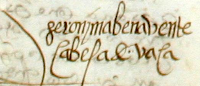 geronima benavente
cabesa de vaca